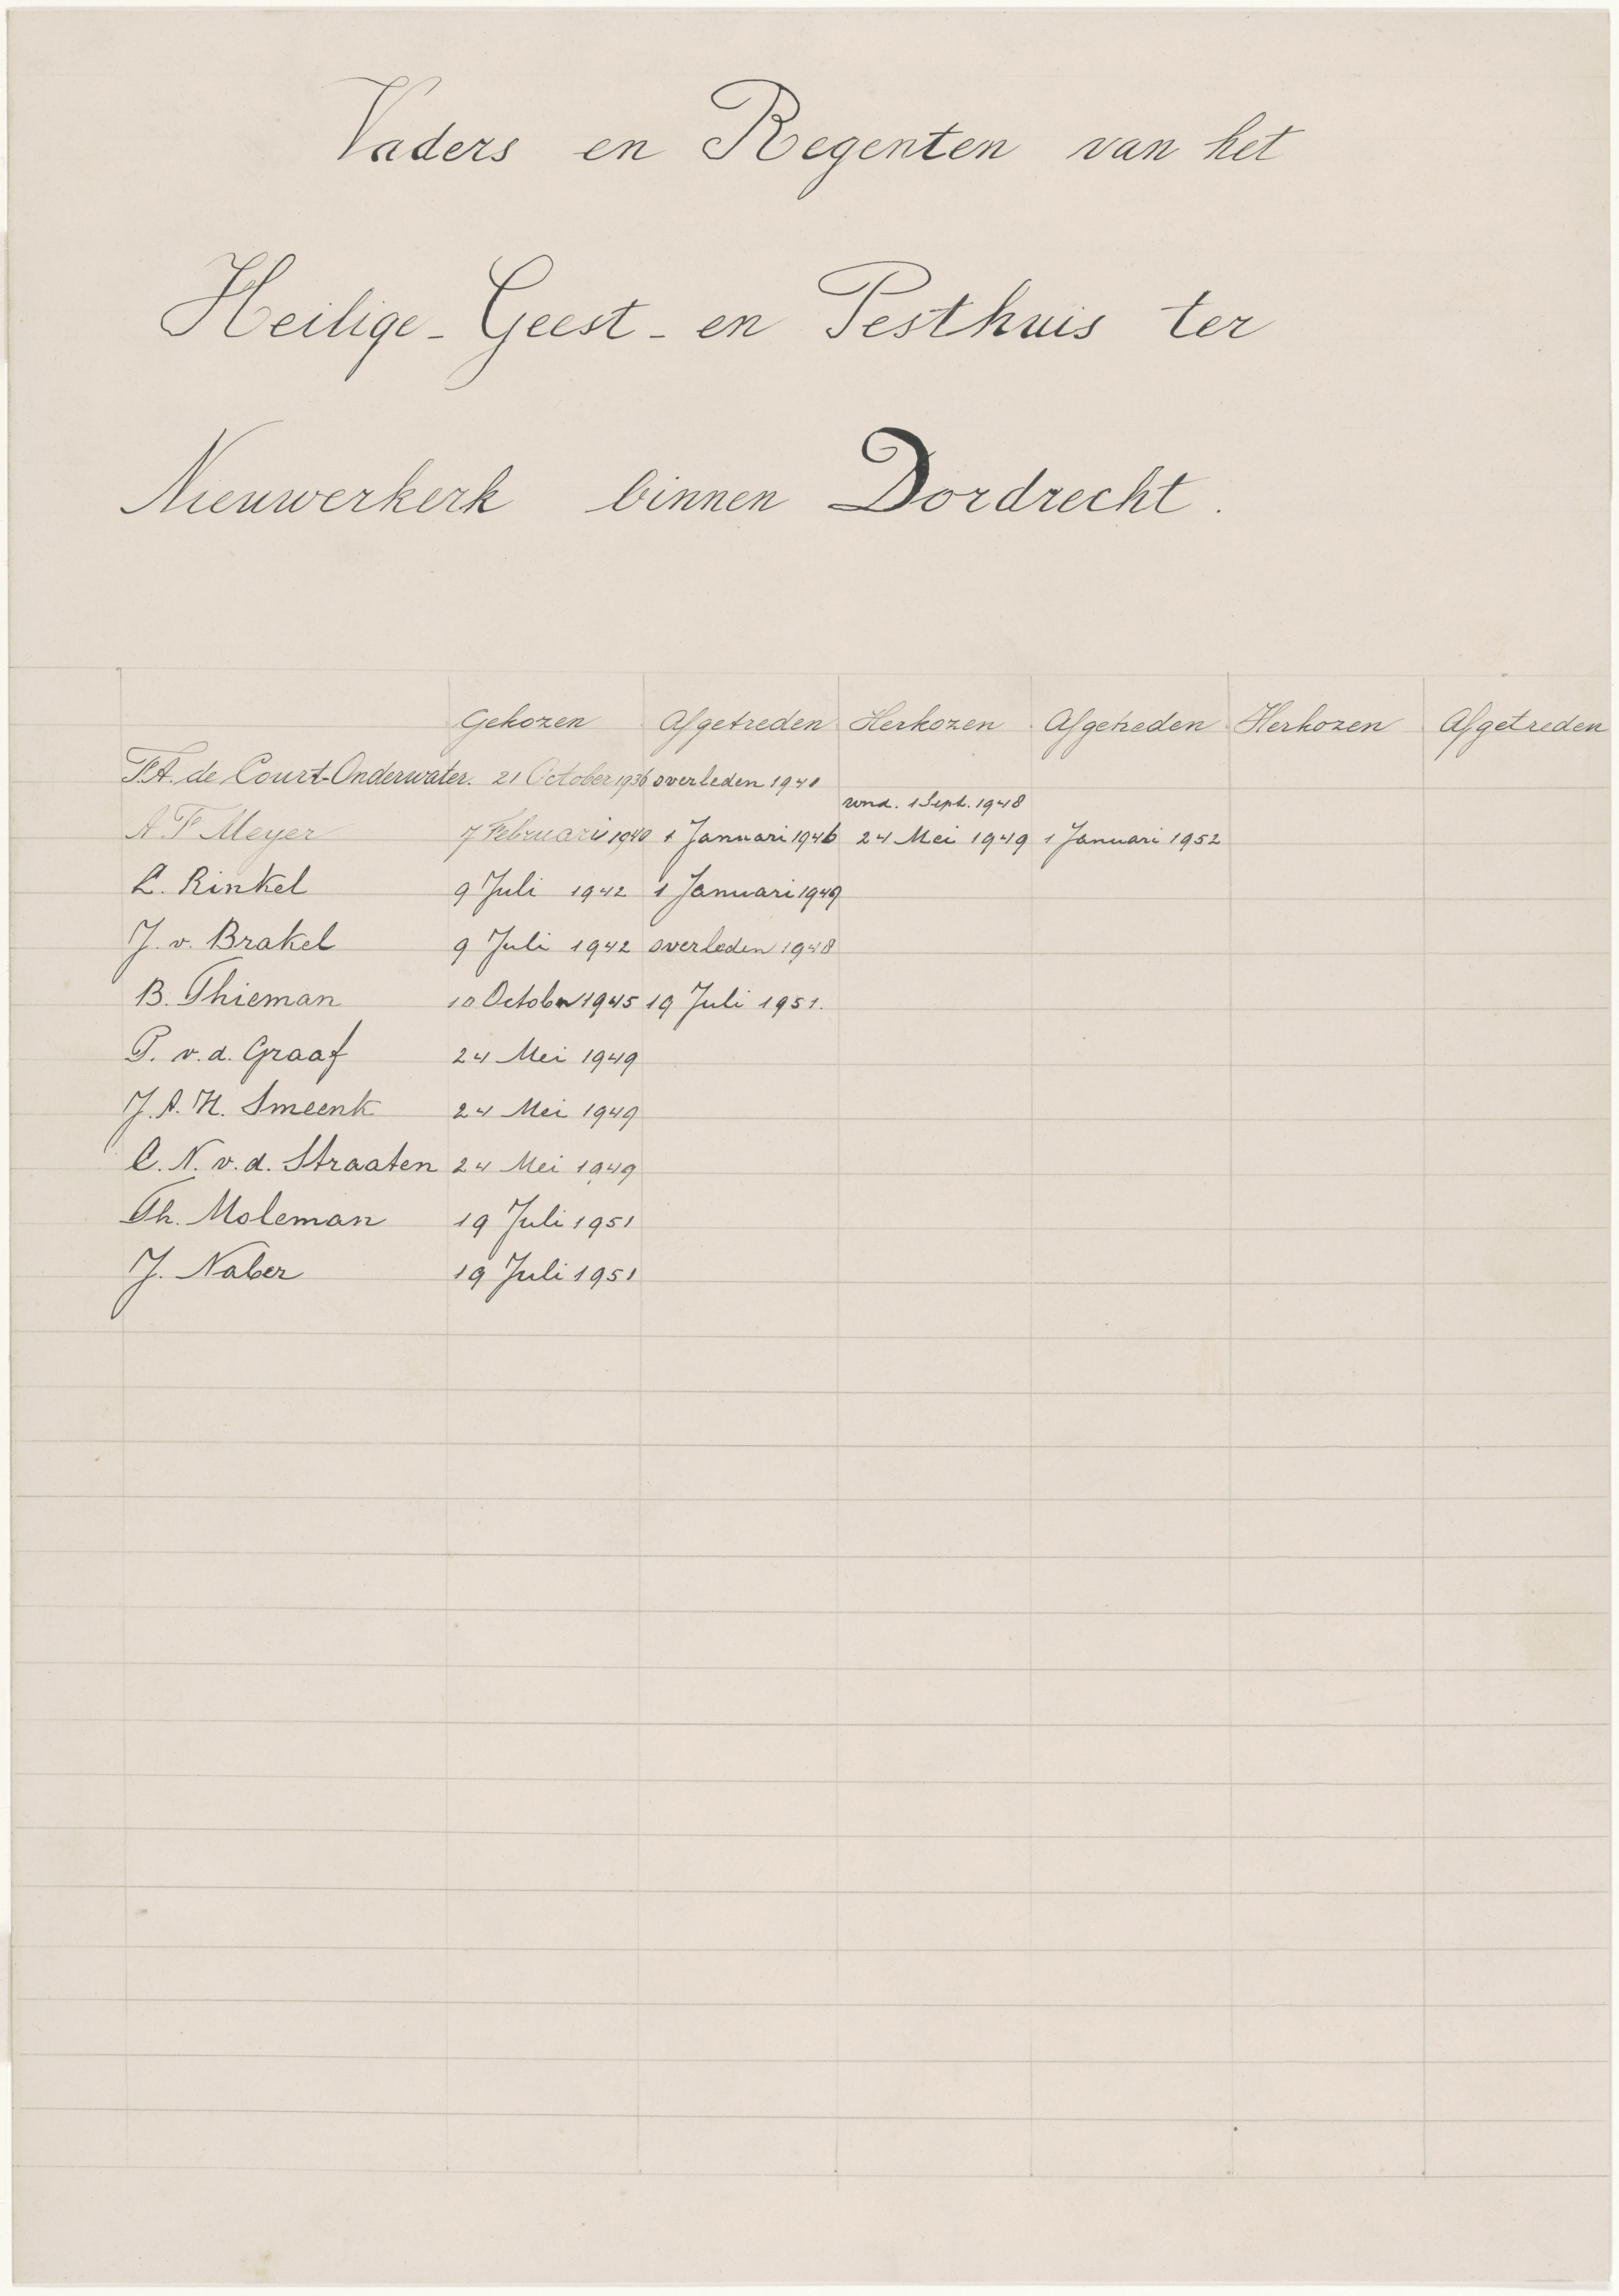 Vaders en Regenten van het
Heilige-Geest-en Pesthuis ter
Nieuwerkerk binnen Dordrecht.
Gekozen Afgetreden Herkozen Afgetreden Herkozen Afgetreden
F.A. de Court-Onderwater. 21 October 1936 overleden 1940
1 Sept. 1948
A F Meyer 7 Februari 1940 1 Januari 1946 24 Mei 1949 1 Januari 1952
L. Rinkel 9 Juli 1942 1 Januari 1949
J. v. Brakel 9 Juli 1942 overleden 1948
B. Thieman 10 October 1945 19 Juli 1951.
P. v.d. Graaf 24 Mei 1949
J.A.H. Smeenk 24 Mei 1949
C.N. v.d. Straaten 24 Mei 1949
Th. Moleman 19 Juli 1951
J. Naber 19 Juli 1951